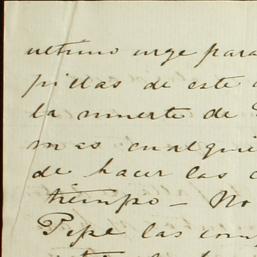 ultimo urge para
pillas de este
la muerte de
mas cualquie
de hacer las
tiempo - No
Pepe las com